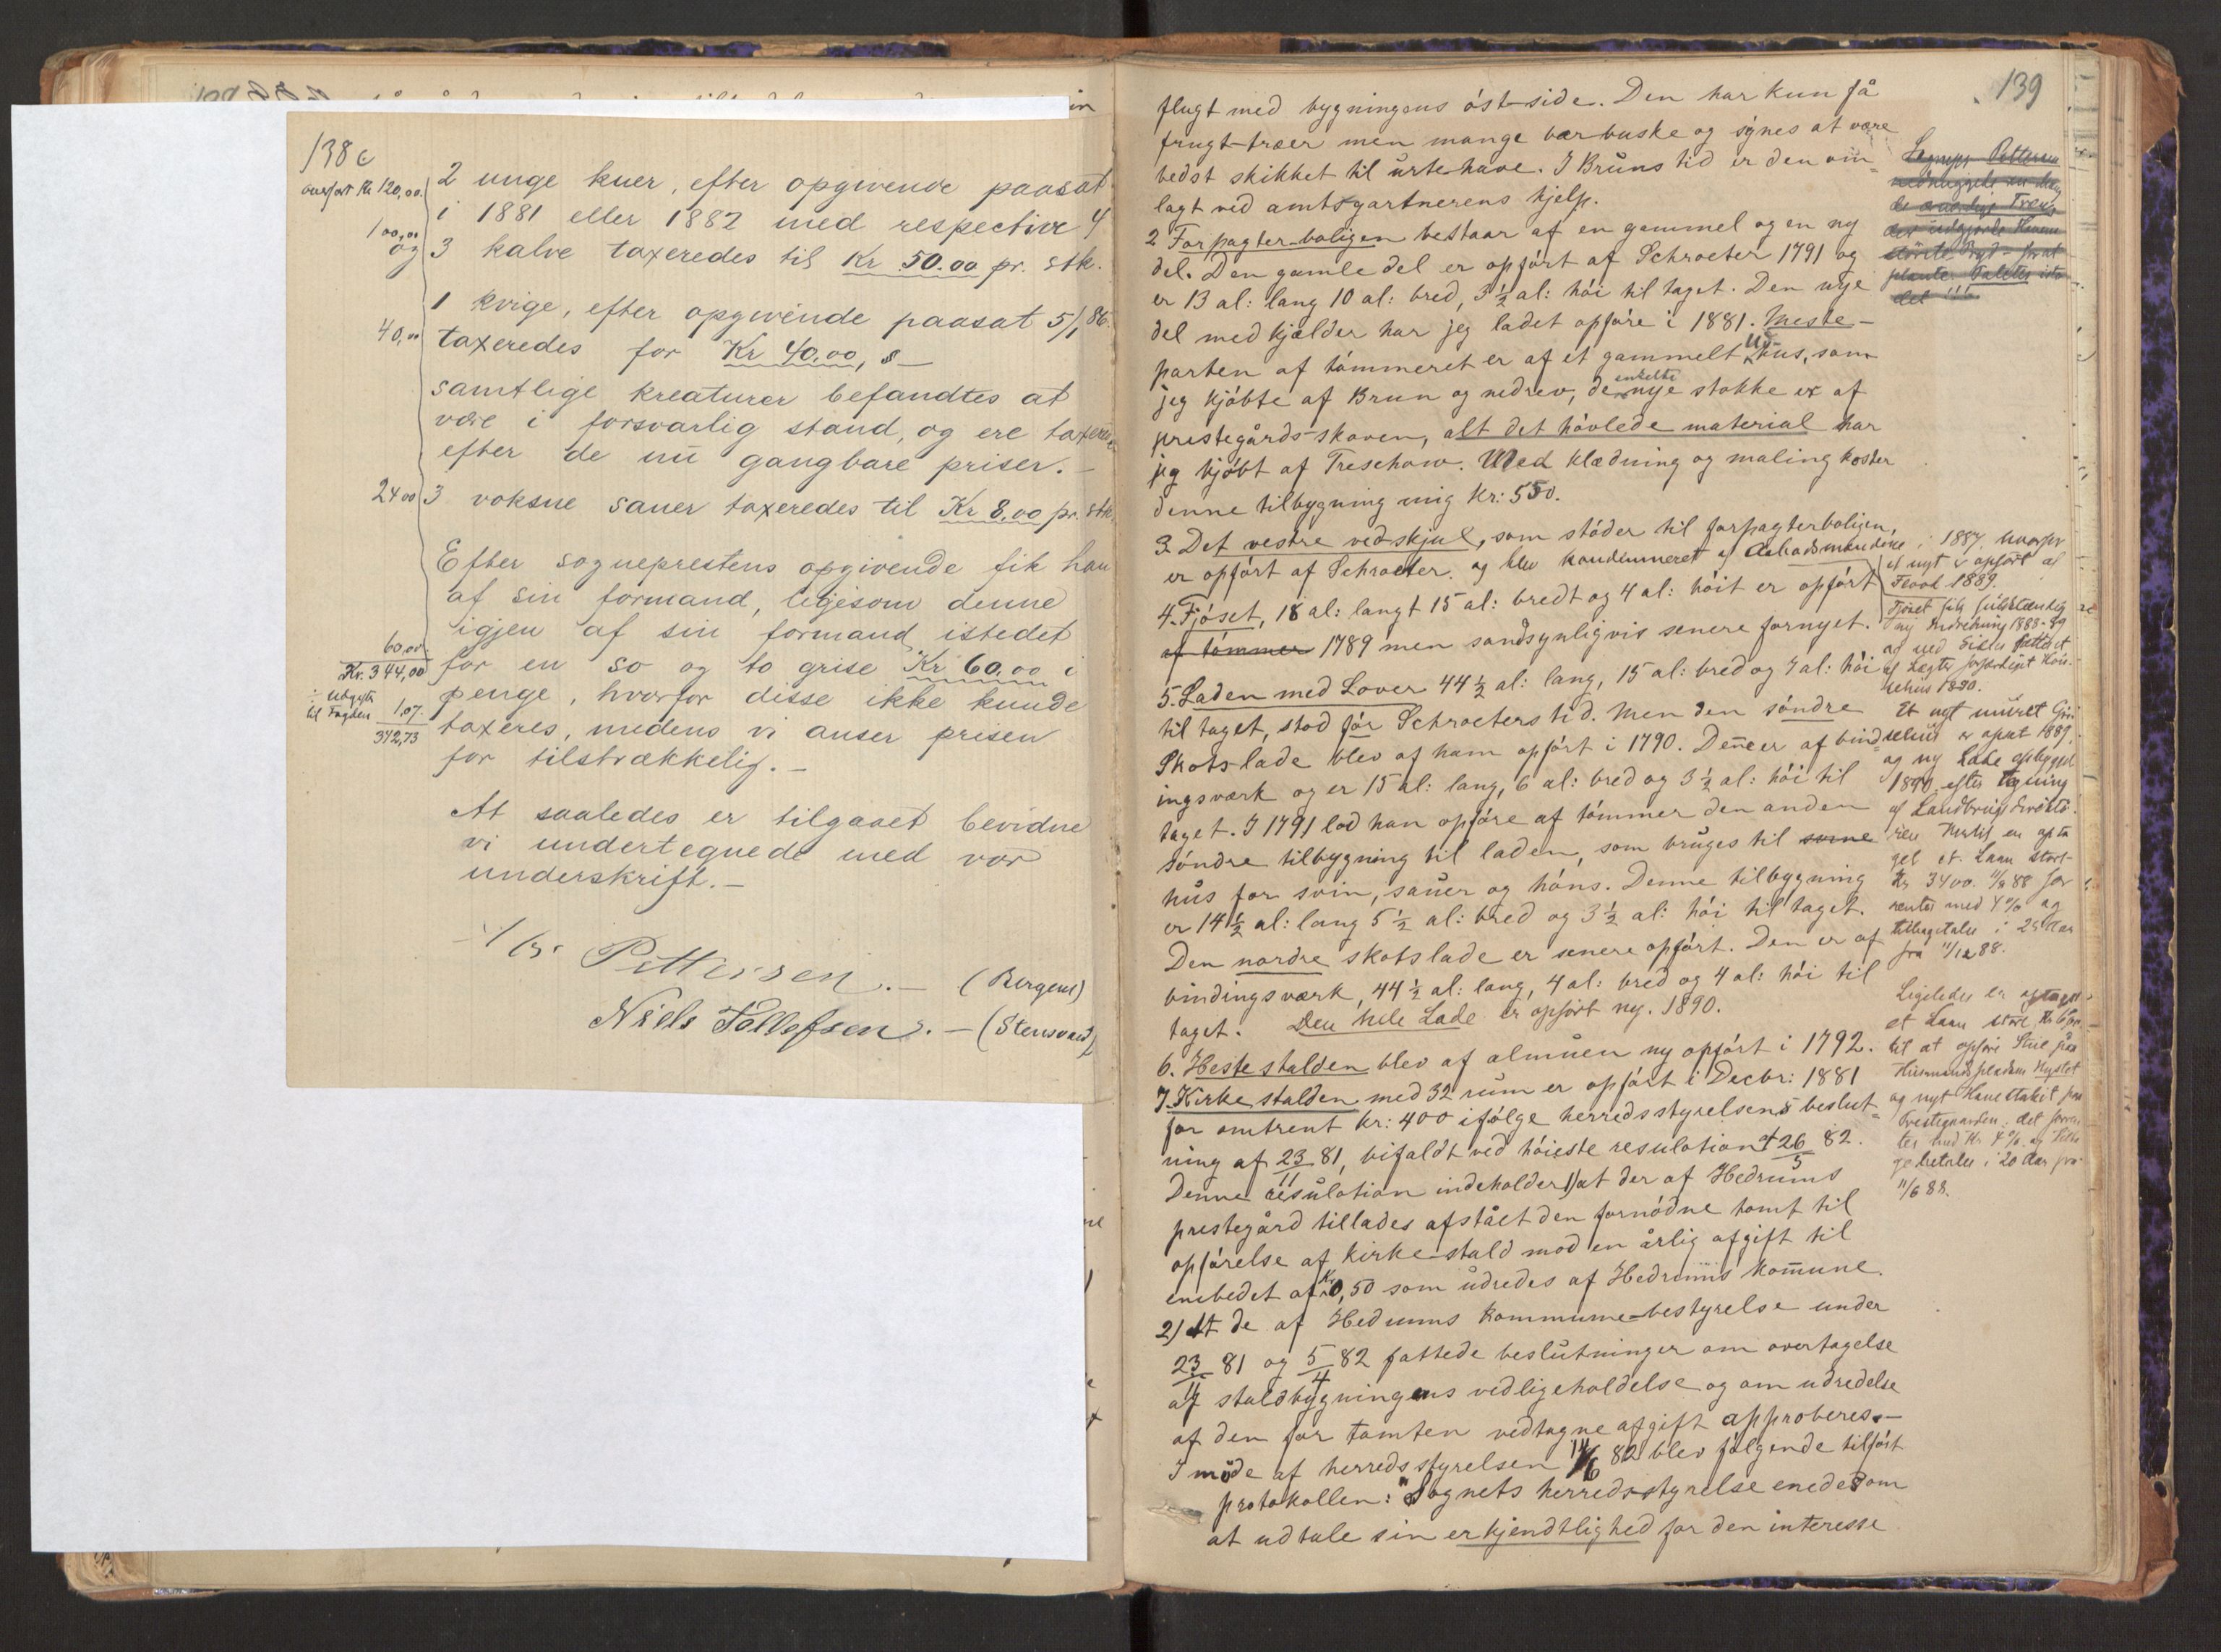 138 c
overført Kr 120,00.
2 unge kuer, efter opgivende paasat
i 1881 eller 1882 med respective 4
100,00
og 3 kalve taxeredes til Kr 50.00 pr. stk.
1 kvige, efter opgivende paasat 5/1 86.
40,00 taxeredes for Kr 40.00,
samtlige kreaturer befandtes at
være i forsvarlig stand, og ere taxerede
efter de nu gangbare priser. –
24 00 3 voksne sauer taxeredes til Kr 8,00 pr. stk.
Efter sogneprestens opgivende fik han
af sin formand, ligesom denne
igjen af sin formand istedet
60,00 for en so og to grise Kr 60,00 i
Kr. 344,00
penge, hvorfor disse ikke kunde
÷ Udgift til Fogden 1,07.
taxeres, medens vi anser prisen
342,73
for tilstrækkelig. –
At saaledes er tilgaaet bevidne
vi undertegnede med vor
underskrift. –
Pettersen. – (Bergene)
Niels Tollefsen. – (Stensvand)
139
flugt med bygningens öst-side. Den har kun få
frugt-træer men mange bær-buske og synes at være
bedst skikket til urte-have. I Bruns tid er den om=
lagt ved amtsgartnerens hjelp.
2 Forpagter-boligen bestaar af en gammel og en ny
del. Den gamle del er opfört af Schroeter 1791 og
er 13 al: lang 10 al: bred, 3 ½ al: höi til taget. Den nye
del med kjælder har jeg ladet opföre i 1881. Meste-
parten af tömmeret er af et gammelt hus, som
jeg kjöbte af Brun og nedrev, de enkelte nye stokke er af
prestegårds-skoven, alt det hövlede material har
jeg kjöbt af Treschow. Med klædning og maling koster
denne tilbygning mig Kr: 550.
3. Det vestre vedskjul, som stöder til forpagterboligen,
er opfört af Schroeter. og blev kondemneret af i 1887.
et nyt er opført af
1889.
4. Fjöset, 18 al: langt 15 al: bredt og 4 al: höit er opfört
af tömmer 1789 men sandsynligvis senere fornyet.
Fjöset fik fuldstændig
ny Indredning 1888-89
5. Laden med Lover 44 ½ al: lang, 15 al: bred og 7 al: höi
1890.
til taget, stod för Schroeters tid. Men den söndre
Skotslade blev af ham opfört i 1790. Denne er af bind=
Et nyt muret
er opsat 1889.
ingsværk og er 15 al: lang, 6 al: bred og 3 ½ al: höi til
og ny Lade opbygget
1890 efter tegning
taget. I 1791 lod han opföre af tömmer den anden
af Landbrugsdirektö-
söndre tilbygning til laden, som bruges til
ren Hertil er opta
get et Laan stort
hus for svin, sauer og höns. Denne tilbygning
Kr 3400. 11/12 88 for
er 14 ½ al: lang 5 ½ al: bred og 3 ½ al: höi til taget.
rentes med 4 % og
tilbagetales i 28 Aar
Den nordre skotslade er senere opfört. Den er af
fra 11/12 88.
bindingsværk, 44 ½ al: lang, 4 al: bred og 4 al: höi til
taget. Den hele Lade er opført ny. 1890.
Ligeledes er optaget
et Laan
6. Hestestalden blev af almuen ny opfört i 1792.
til at opføre Stue paa
Husmandspladsen
7. Kirkestalden med 32 rum er opfört i Decbr: 1881
og nyt Havestakit paa
for omtrent Kr: 400 ifölge herredsstyrelsens beslut=
Prestegaarden. det forren
tes med 4 % og tilba
ning af 23/11 81, bifaldt ved höieste resulation af 26/5 82.
gebetales i 20 Aar fra
11/6 88.
Denne resulation indeholder 1) at der af Hedrums
prestegård tillades afstået den fornödne tomt til
opförelse af kirke-stald mod en årlig afgift til
embedet af Kr 0,50 som udredes af Hedrums kommune.
2) At de af Hedrums kommune-bestyrelse under
23/11 81 og 5/4 82 fattede beslutninger om overtagelse
af staldbygningens vedligeholdelse og om udredelse
af den for tomten vedtagne afgift approberes. –
I möde af herredsstyrelsen 14/6 82 blev fölgende tilfört
protokollen: "Sognets herredsstyrelse enedes om
at udtale sin erkjendtlighed for den interesse